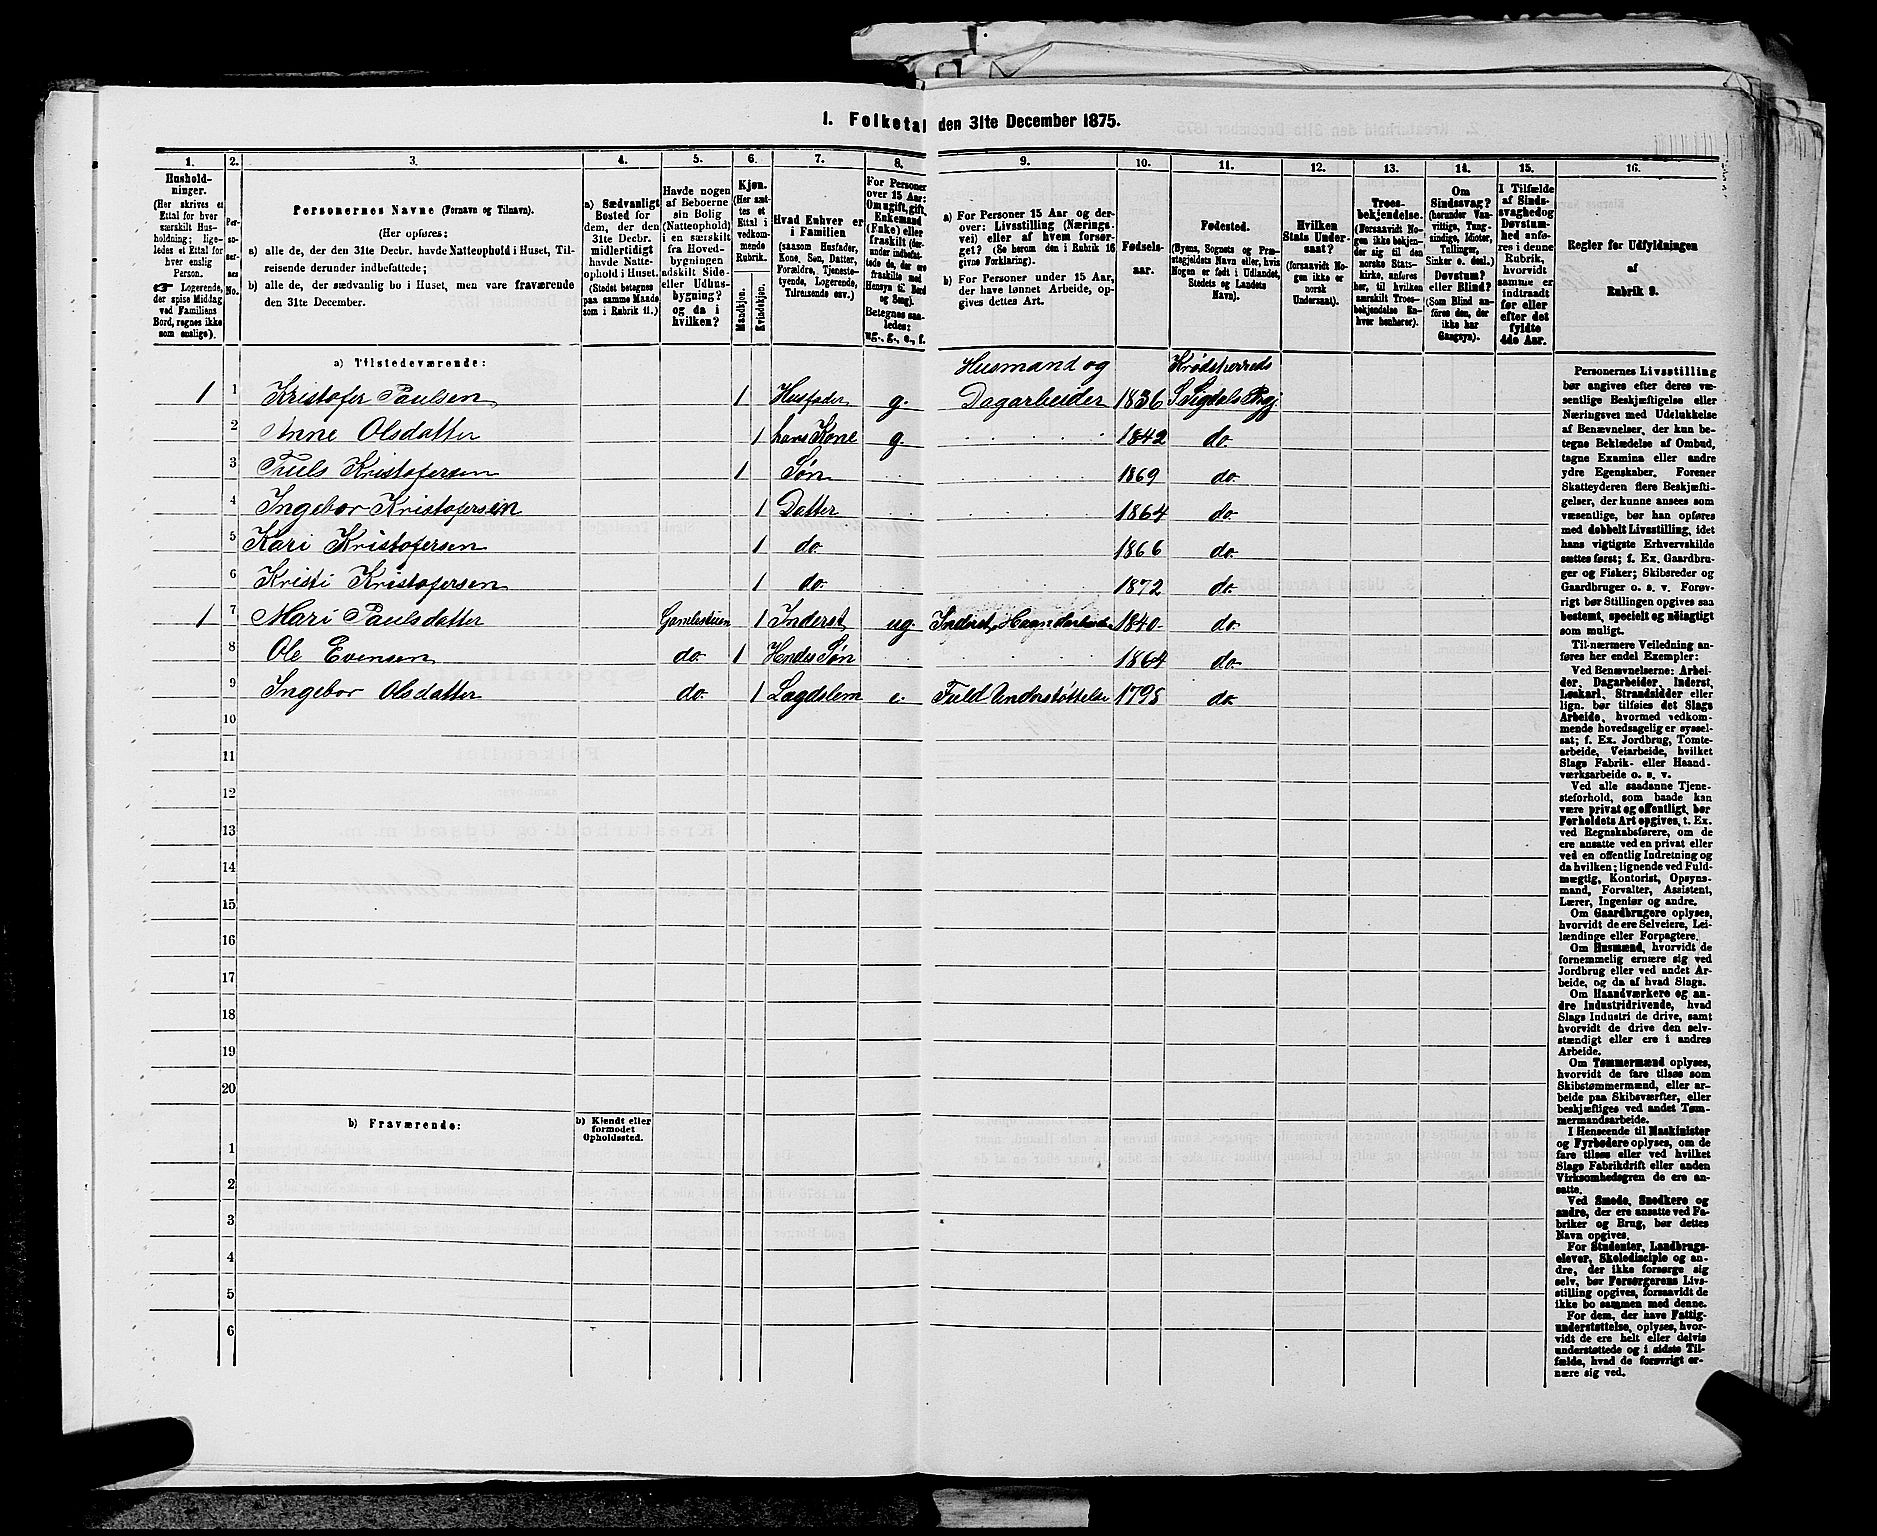 1. Folketal den 31te December 1875.
1. 2. 3. 4. 5. 6. 7. 8. 9. 10. 11. 12. 13. 14. 15. 16.
Hushold-
ninger.
(Her skrives et
Ettal for hver
særskilt Hus-
holdning; lige-
ledes et Ettal for
hver enslig
Person.
Logerende,
der spise Middag
ved Familiens
Bord, regnes ikke
som enslige).
Per-
so-
ner-
nes
No.
Personernes Navne (Fornavn og Tilnavn).
(Her opføres:
a) alle de, der den 31te Decbr. havde Natteophold i Huset, Til-
reisende derunder indbefattede;
b) alle de, der sædvanlig bo i Huset, men vare fraværende
den 31te December.
a) Sædvanligt
Bosted for
dem, der den
31te Decbr.
midlertidigt
havde Natte-
ophold i Huset.
(Stedet betegnes
paa samme Maade
som i Rubrik 11.)
Havde nogen
af Beboerne
sin Bolig
(Natteophold)
i en særskilt
fra Hoved-
bygningen
adskilt Side-
eller Udhus-
bygning?
og da i
hvilken?
Kjøn.
(Her sæt-
tes et
Ettal i
vedkom-
mende
Rubrik.
Mandkjøn.
Kvindekjøn.
Hvad Enhver er
i Familien
(saasom Husfader,
Kone, Søn, Datter,
Forældre, Tjeneste-
tyende, Logerende,
Tilreisende osv.)
For Personer
over 15 Aar:
Om ugift, gift,
Enkemand
(Enke) eller
fraskilt (der-
under indbefat-
tede de, der ere
fraskilte med
Hensyn til Bord
og Seng).
Betegnes saa-
ledes:
ug., g., e., f.
a) For Personer 15 Aar og der-
over: Livsstilling (Nærings-
vei) eller af hvem forsør-
get? (Se herom den i Rubrik 16
givne Forklaring).
b) For Personer under 15 Aar,
der have lønnet Arbeide, op-
gives dettes Art.
Fødsels-
aar.
Fødested.
(Byens, Sognets og Præ-
stegjeldets Navn eller, hvis
Nogen er født i Udlandet,
Stedets og Landets
Navn).
Hvilken
Stats Under-
saat?
(forsaavidt No-
gen ikke er
norsk
Undersaat).
Troes-
bekjendelse.
(Forsaavidt No-
gen ikke bekjen-
der sig til den
norske Stats-
kirke, anføres
her, til hvilken
særskilt Troes-
bekjendelse En-
hver henhører).
Om
Sindssvag?
(herunder Van-
vittige, Tung-
sindige, Idioter,
Tullinger,
Sinker o. desl.)
Døvstum?
eller Blind?
(Som Blind an-
føres den, der
ikke har
Gangsyn).
I Tilfælde
af Sinds-
svaghed og
Døvstum-
hed anfø-
res i denne
Rubrik,
hvorvidt
samme er
indtraadt
før eller
efter det
fyldte
4de Aar.
Regler for Udfyldningen
af
Rubrik 9.
a) Tilstedeværende:
Husmand og Krødsherreds
1 1 Kristofer Paulsen 1 Husfader g. Dagarbeider 1836 S. Sigdals Prgj
2 Anne Olsdatter 1 hans Kone g. 1842 do.
3 Truls Kristofersen 1 Søn 1869 do.
4 Ingebor Kristofersen 1 Datter 1864 do.
5 Kari Kristofersen 1 do. 1866 do.
6 Kristi Kristofersen 1 do. 1872 do.
1 7 Mari Paulsdatter Gamlestuen 1 Inderst ug. Inderst, Haandarbeide 1840 do.
8 Ole Evensen do. 1 Hendes Søn 1864 do.
9 Ingebor Olsdatter do. 1 Lægdslem e. Fuld Understøttelse 1795 do.
10
11
12
13
14
15
16
17
18
19
20
b) Fraværende: b) Kjendt eller
formodet
Opholdssted.
1
2
3
4
5
6
Personernes Livsstilling
bør angives efter deres væ-
sentlige Beskjæftigelse eller
Næringsvei med Udelukkelse
af Benævnelser, der kun be-
tegne Beklædelse af Ombud,
tagne Examina eller andre
ydre Egenskaber. Forener
Skatteyderen flere Beskjæfti-
gelser, der kunne ansees som
væsentlige, bør han opføres
med dobbelt Livsstilling, idet
hans vigtigste Erhvervskilde
sættes først; f. Ex. Gaardbru-
ger og Fisker; Skibsreder og
Gaardbruger o. s. v. Forøv-
rigt bør Stillingen opgives saa
bestemt, specielt og nøiagtigt
som muligt.
Til nærmere Veiledning an-
føres her endel Exempler:
Ved Benævnelserne: Arbei-
der, Dagarbeider, Inderst,
Løskarl, Strandsidder eller
lign. bør tilføies det Slags
Arbeide, hvormed vedkom-
mende hovedsagelig er syssel-
sat; f. Ex. Jordbrug, Tomte-
arbeide, Veiarbeide, hvilket
Slags Fabrik- eller Haand-
værksarbeide o. s. v.
Ved alle saadanne Tjene-
steforhold, som baade kan
være privat og offentligt, bør
Forholdets Art opgives, t. Ex.
ved Regnskabsførere, om de
ere ansatte ved en privat eller
ved en offentlig Indretning og
da hvilken; lignende ved Fuld-
mægtig, Kontorist, Opsyns-
mand, Forvalter, Assistent,
Lærer, Ingeniør og andre.
Om Gaardbrugere oplyses,
hvorvidt de ere Selveiere, Lei-
lændinge eller Forpagtere.
Om Husmænd, hvorvidt de
fornemmelig ernære sig ved
Jordbrug eller ved andet Ar-
beide, og da af hvad Slags.
Om Haandværkere og an-
dre Industridrivende, hvad
Slags Industri de drive, samt
hvorvidt de drive den selv-
stændigt eller ere i andres
Arbeide.
Om Tømmermænd oplyses,
hvorvidt de fare tilsøs som
Skibstømmermænd, eller ar-
beide paa Skibsværfter, eller
beskjæftiges ved andet Tøm-
mermandsarbeide.
I Henseende til Maskinister
og Fyrbødere oplyses, om de
fare tilsøs eller ved hvilket
Slags Fabrikdrift eller anden
Virksomhedsgren de ere an-
satte.
Ved Smede, Snedkere og
andre, der ere ansatte ved Fa-
briker og Brug, bør dettes
Navn opgives.
For Studenter, Landbrugs-
elever, Skoledisciple og an-
dre, der ikke forsørge sig
selv, bør Forsørgerens Livs-
stilling opgives, forsaavidt de
ikke bo sammen med denne.
For dem, der have Fattig-
understøttelse, oplyses, hvor-
vidt de ere helt eller delvis
understøttede og i sidste Til-
fælde, hvad de forøvrigt er-
nære sig ved.